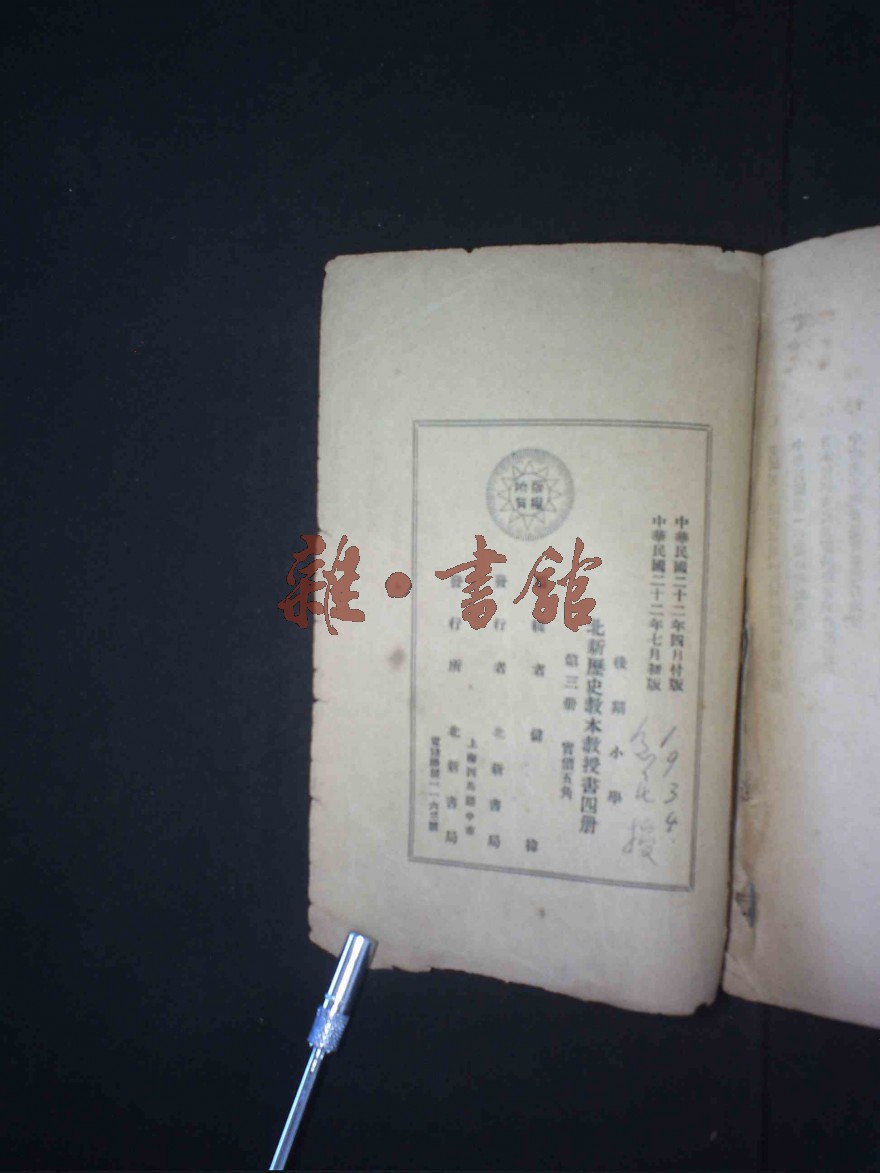 中華民國二十二年四月付版
中華民國二十二年七月初版
1934.
授
後期小學
北新歷史教本教授書四册
第三册 實價五角
者
發行者 北新書局
發行所 北新書局
上海四馬路中市
版權
雜·書館